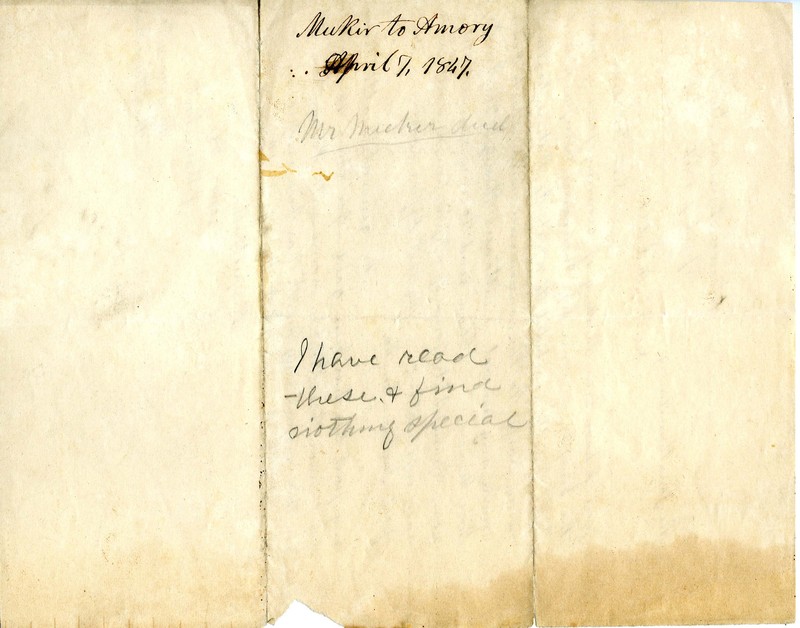 Mekir to Amory
April 7, 1847.
Mr Meeker
I have read
these & find
nothing special